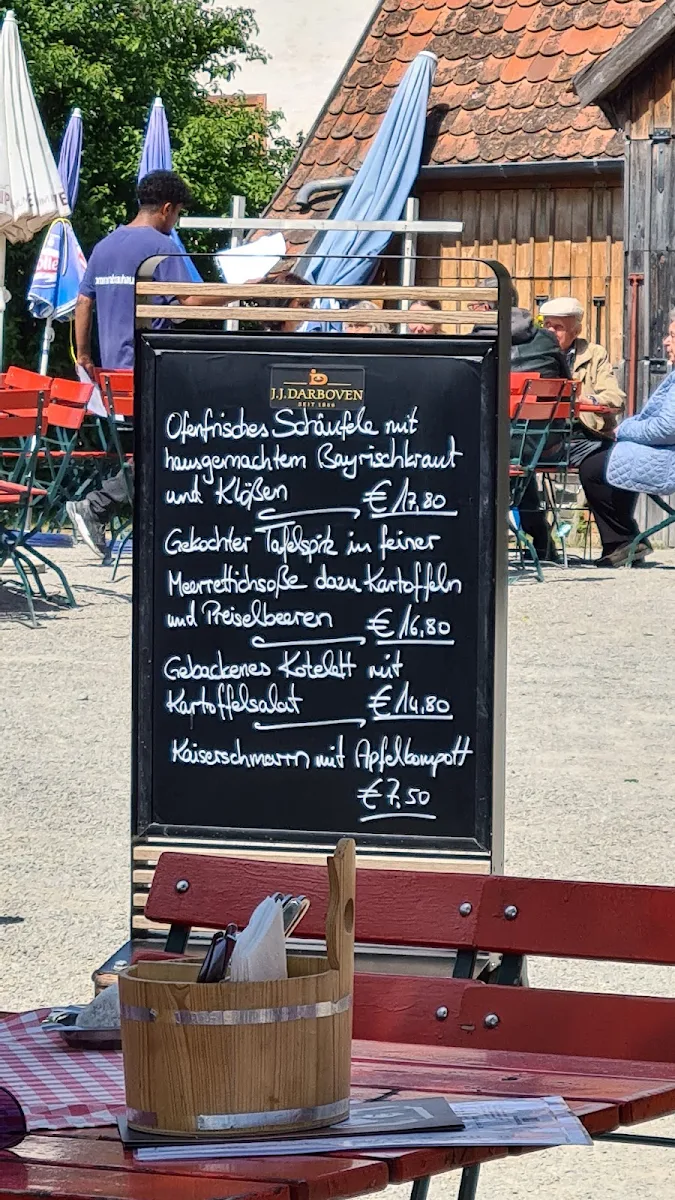 J.J. DARBOVEN
SEIT 1866
Ofenfrisches Schäufele mit
hausgemachtem Bayrischkraut
und Klößen € 17,80
Gekochter Tafelspitz in feiner
Meerrettichsoße dazu Kartoffeln
und Preiselbeeren € 16,80
Gebackenes Kotelett mit
Kartoffelsalat € 14,80
Kaiserschmarrn mit Apfelkompott
€ 7,50